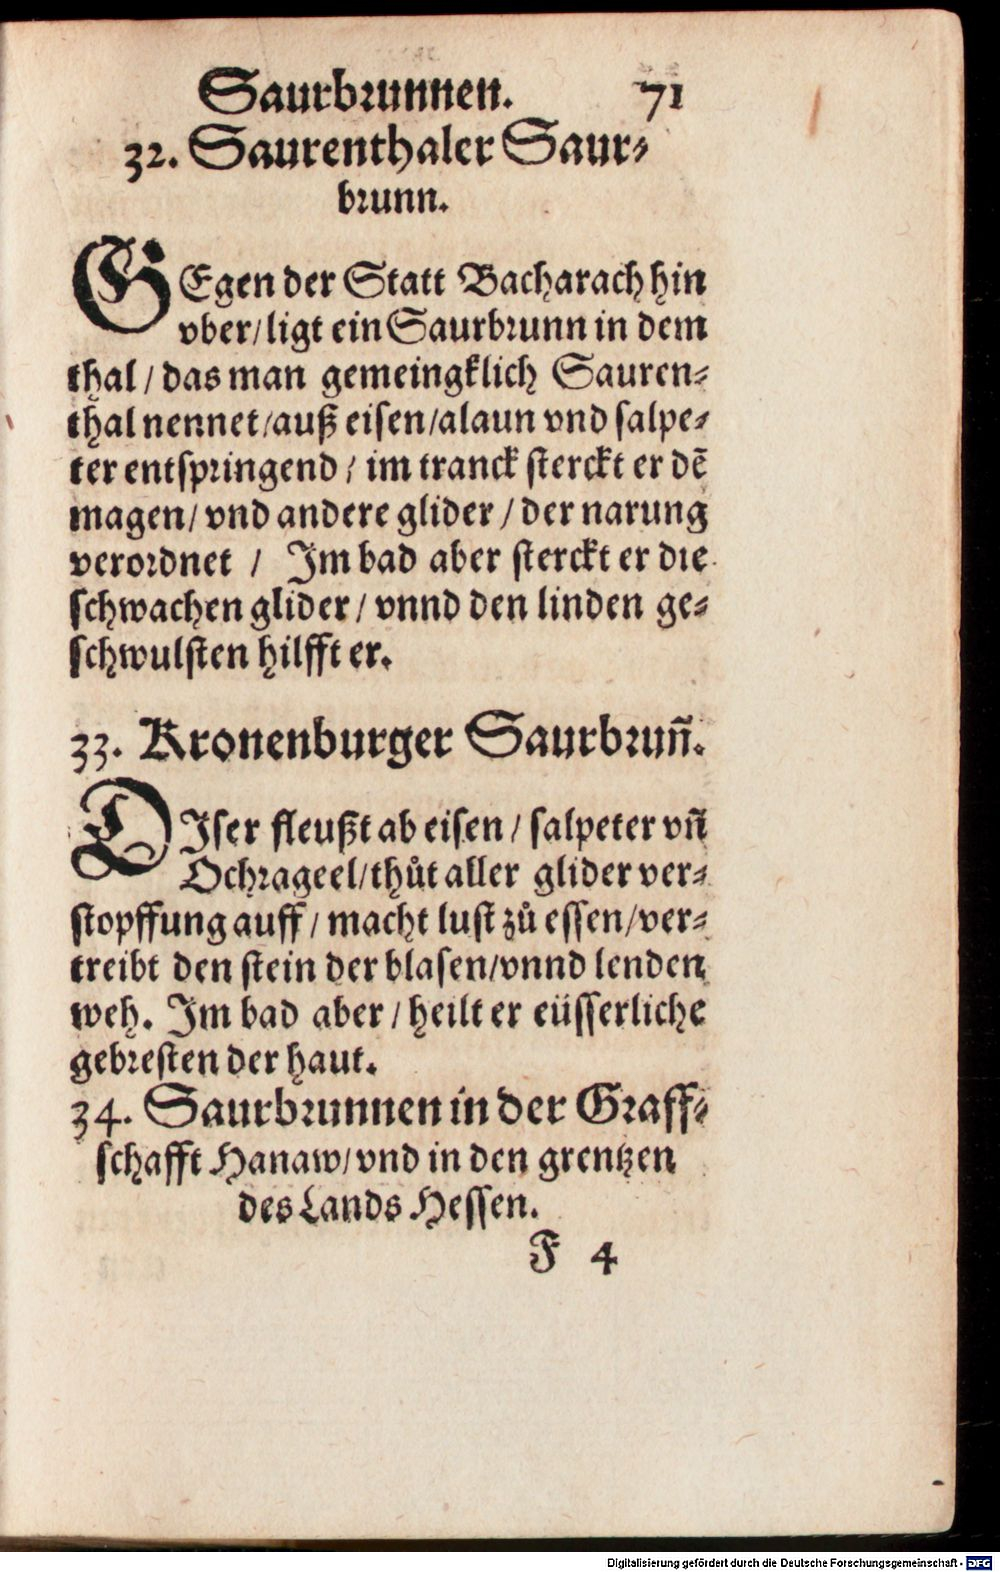 Saurbrunnen. 71
32. Saurenthaler Saur⸗
brunn.
GEgen der Statt Bacharach hin
vber/ligt ein Saurbrunn in dem
thal/das man gemeingklich Sauren⸗
thal nennet/auß eisen/alaun vnd salpe⸗
ter entspringend/im tranck sterckt er dẽ
magen/vnd andere glider/der narung
verordnet / Im bad aber sterckt er die
schwachen glider/vnnd den linden ge⸗
schwulsten hilfft er.
33. Kronenburger Saurbrun̄.
DIser fleußt ab eisen/salpeter vn̄
Ochrageel/thůt aller glider ver⸗
stopffung auff/macht lust zů essen/ver⸗
treibt den stein der blasen/vnnd lenden
weh. Im bad aber/heilt er eüsserliche
gebresten der haut.
34. Saurbrunnen in der Graff⸗
schafft Hanaw/vnd in den grentzen
des Lands Hessen.
F 4
Digitalisierung gefördert durch die Deutsche Forschungsgemeinschaft - DFG